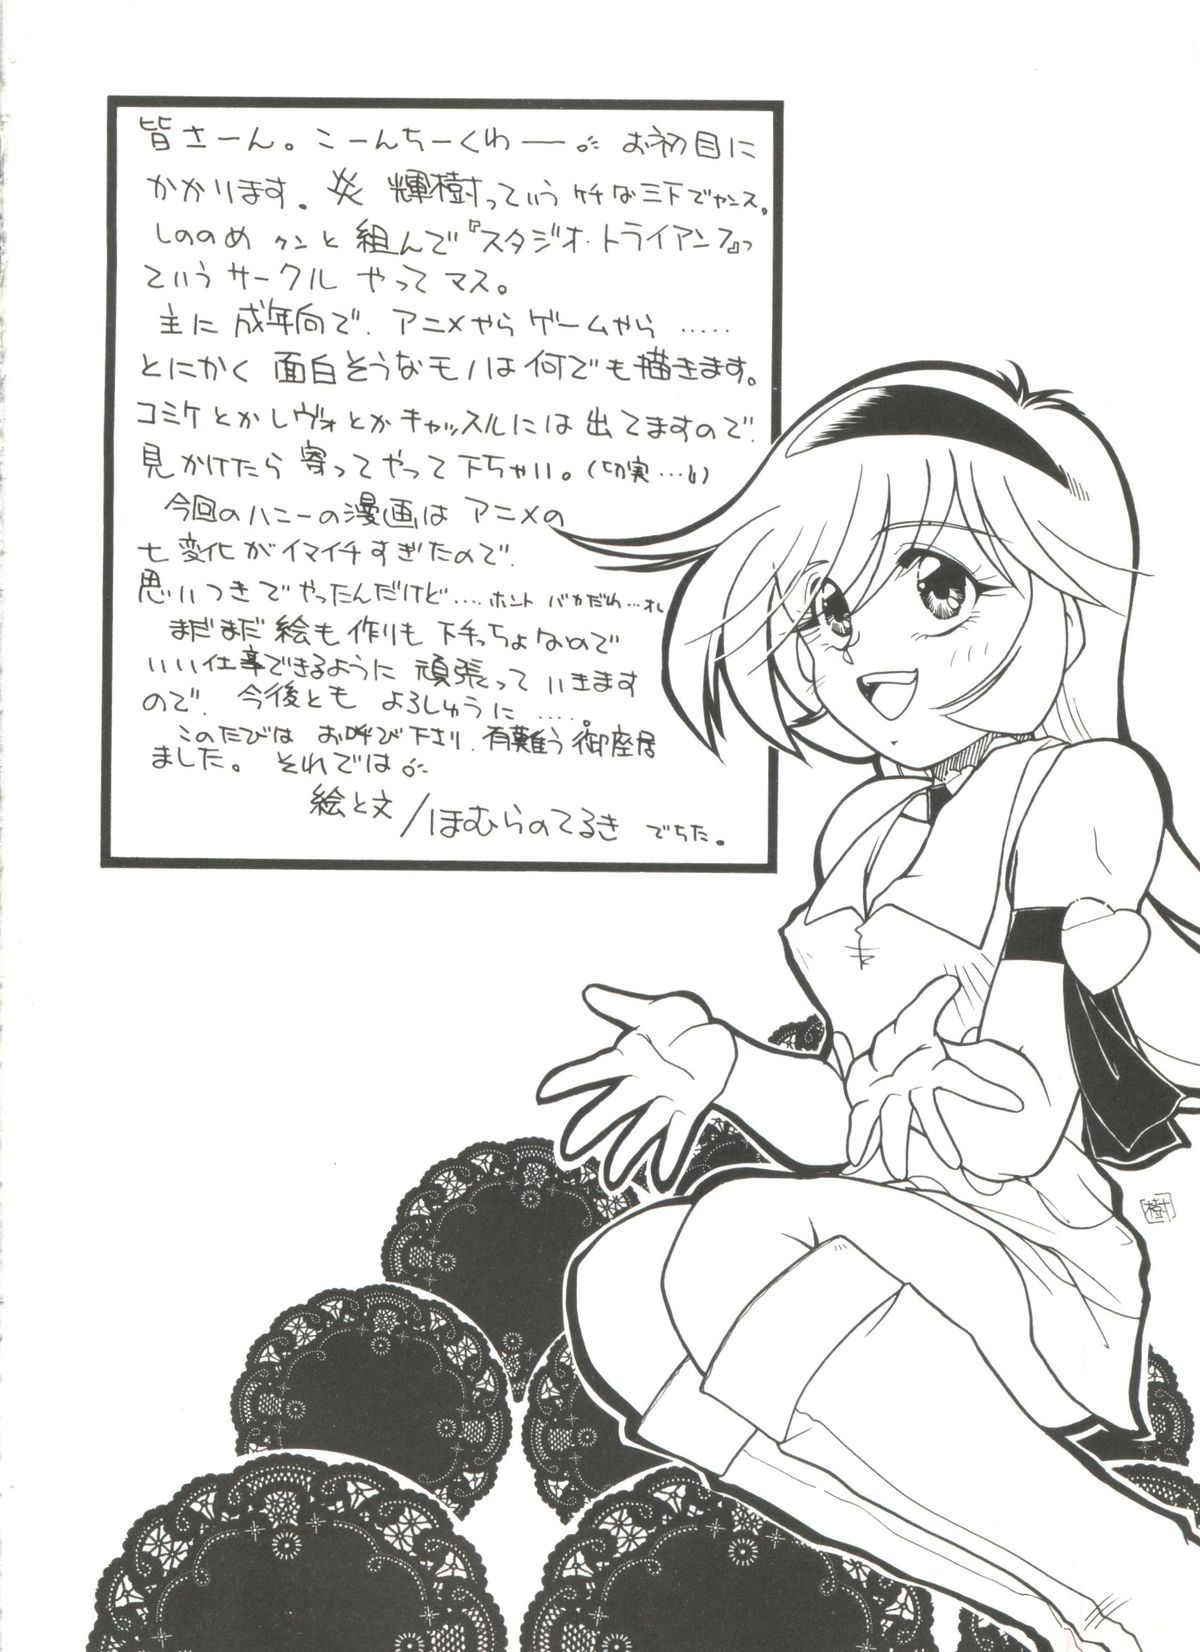 皆さーん。こーんちーくわー。お初目に
かかります。炎 輝樹っていうケチな三下でヤンス。
しののめクンと組んで『スタジオ・トライアングル』っ
ていうサークルやってマス。
主に成年向で、アニメやらゲームやら……
とにかく面白そうなモノは何でも描きます。
コミケとかレヴォとかキャッスルには出てますので、
見かけたら寄ってやって下ちゃい。(切実…)
今回のハニーの漫画はアニメの
七変化がイマイチすぎたので、
思いつきでやったんだけど…. ホント バカだわ…オレ
まだまだ絵も作りも下手っちょなので
いい仕事できるように頑張っていきます
ので、今後ともよろしゅうに……。
このたびはお呼び下さり、有難う御座居
ました。それでは。
絵と文/ほむらのてるき でちた。
樹